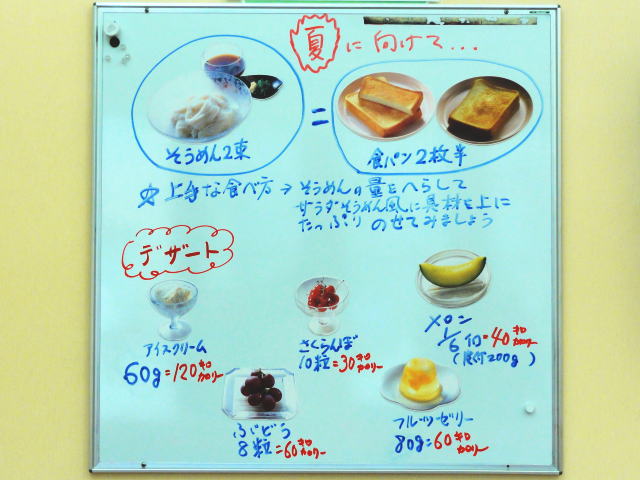 夏に向けて...
そうめん2束
=
食パン2枚半
☆上手な食べ方→そうめんの量をへらして
サラダそうめん風に具材を上に
たっぷりのせてみましょう
デザート
アイスクリーム
60g=120キロカロリー
さくらんぼ
10粒=30キロカロリー
メロン
1/6個=40キロカロリー
(皮付200g)
ぶどう
8粒=60キロカロリー
フルーツゼリー
80g=60キロカロリー